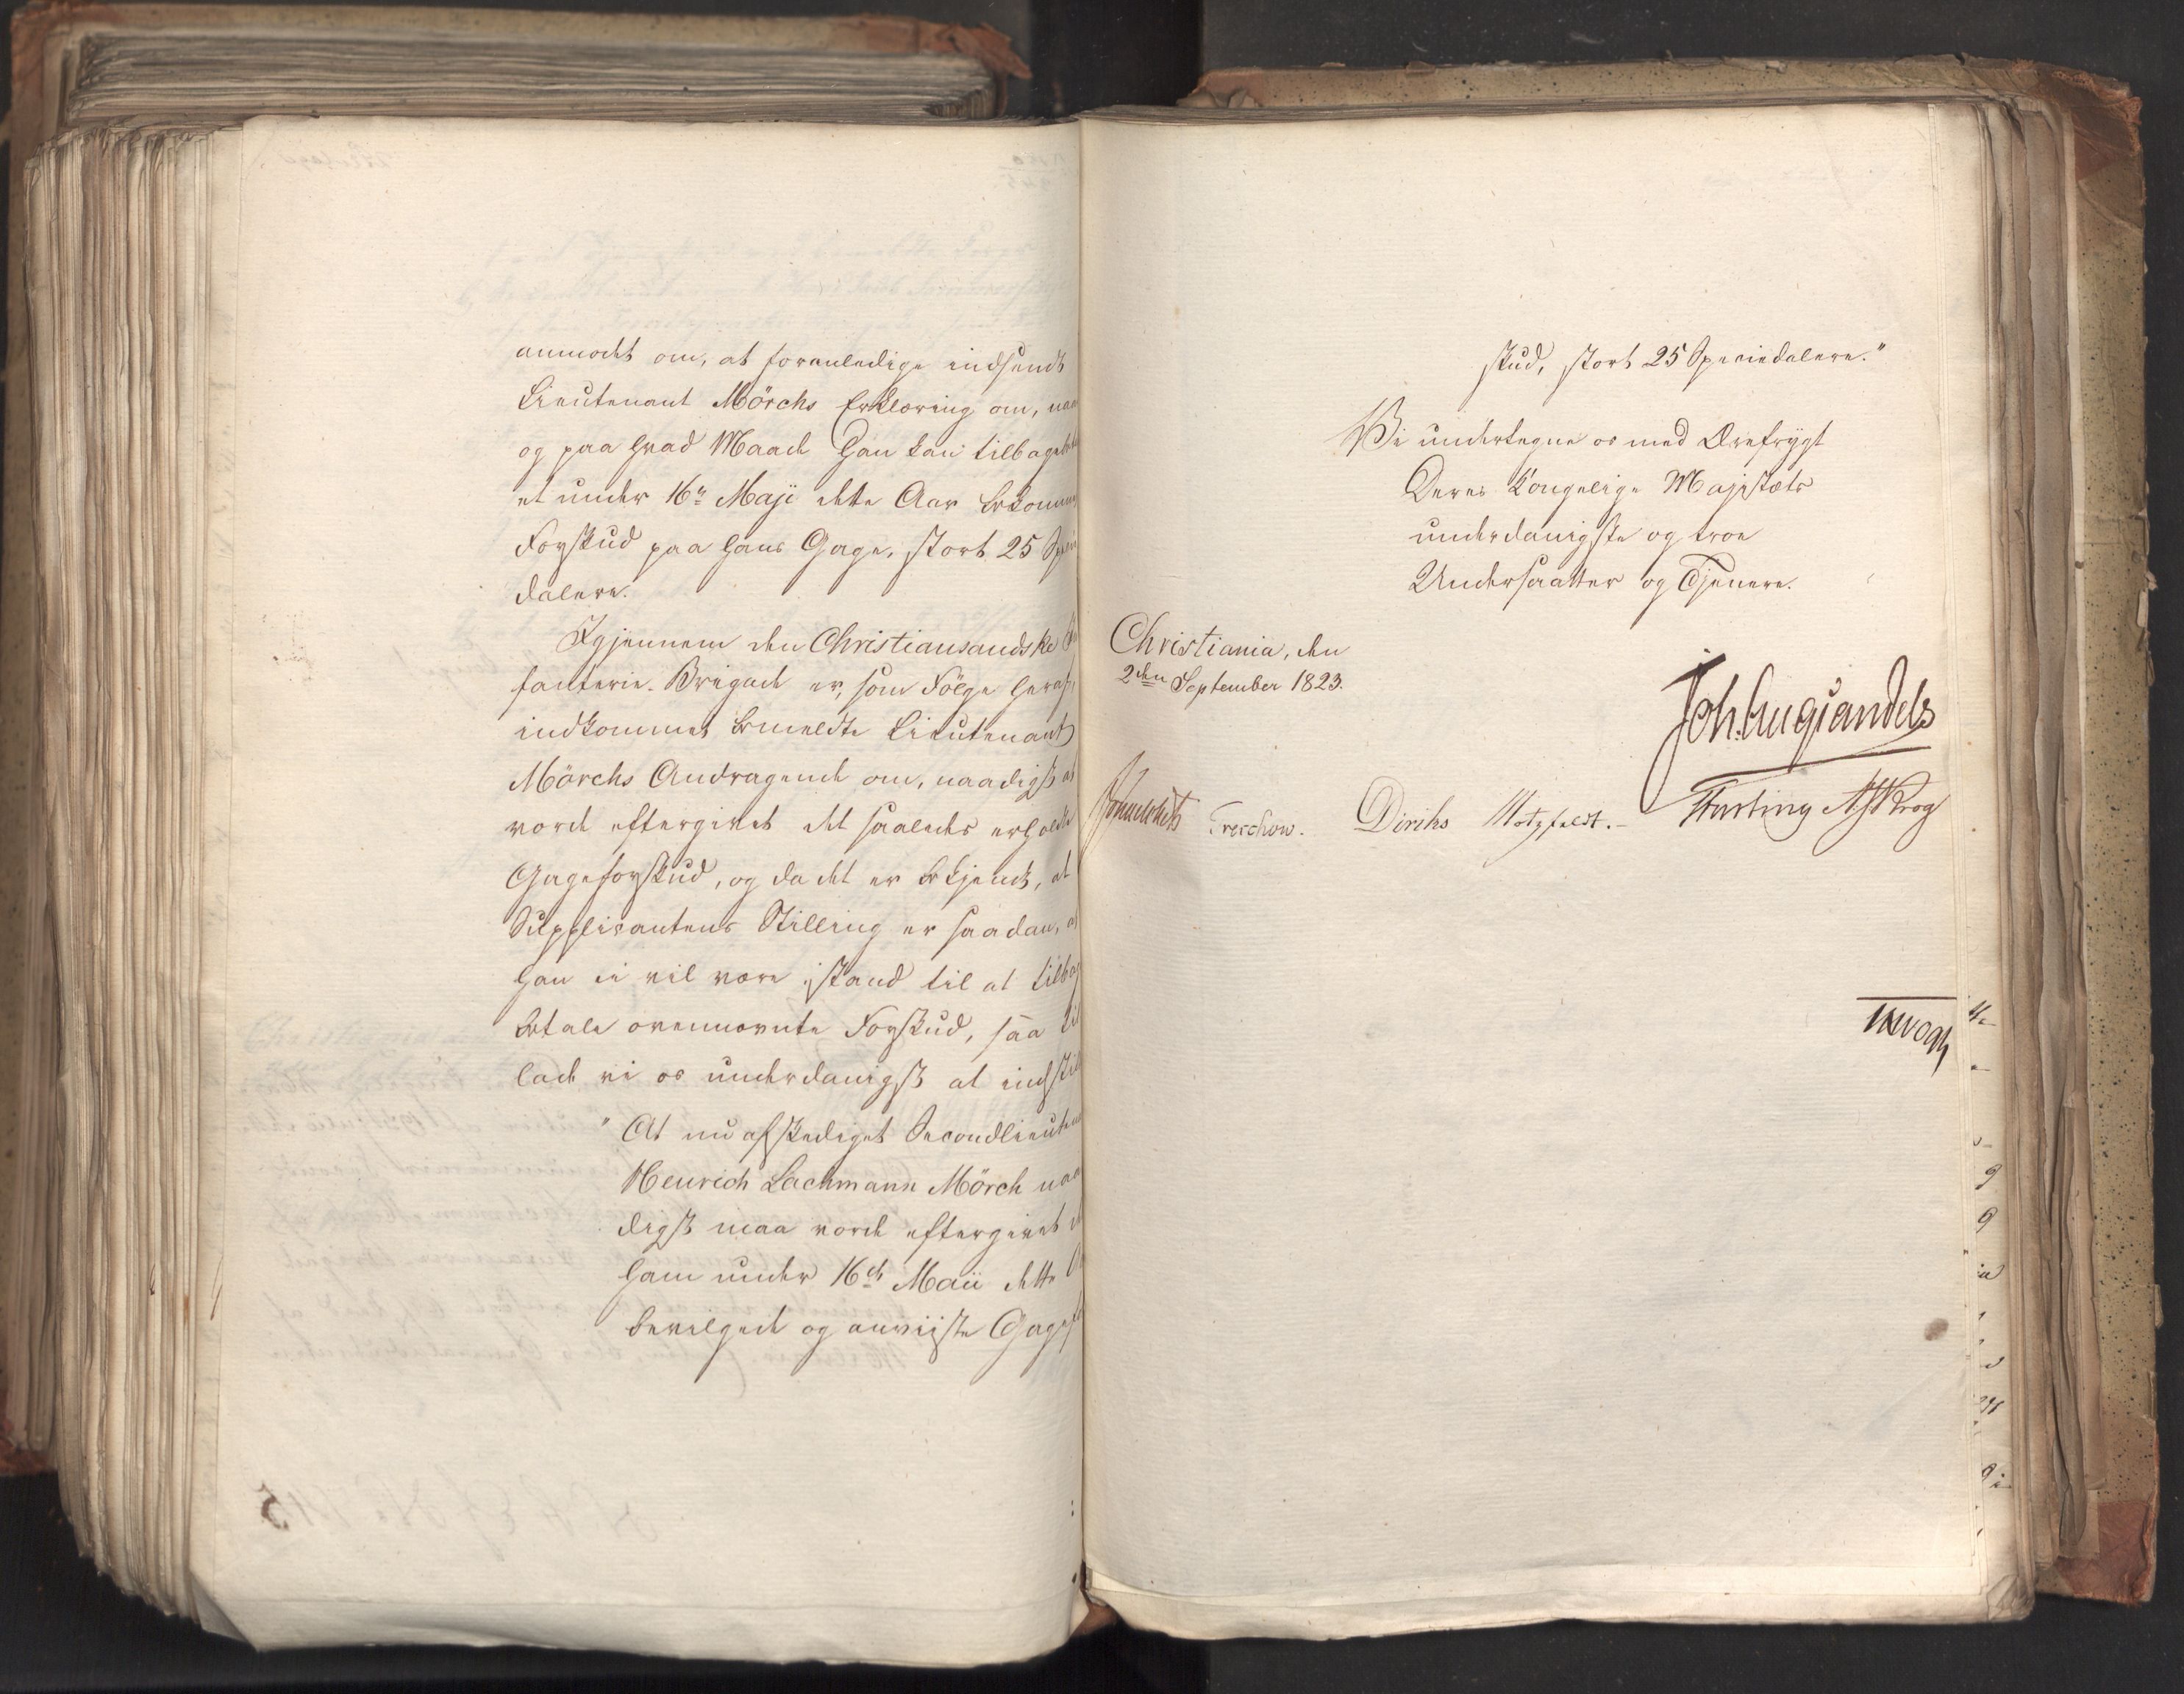 anmodet om, at foranledige indsendt
Lieutenant Mörchs Erklæring om, naar
og paa hvad Maade Han kan tilbagebetale
et under 16de Maji dette Aar bekommet
Forskud paa Hans Gage, stort 25 Specie
dalere.
Igjennem den Christiansandske In
fanterie-Brigade er, som Følge heraf,
indkommet bemeldte Lieutenant
Mörchs Andragende om, naadigst at
vorde eftergivet det saaledes erholdte
Gageforskud, og da det er bekjendt, at
Supplicantens Stilling er saadan, at
han ei vil være istand til at tilbage
betale ovennævnte Forskud, saa til
lade vi os underdanigst at indstille
"At nu afskediget Secondlieutenant
Henrich Lachmann Mörch naa
digst maa vorde eftergivet det
ham under 16de Maii dette Aar
bevilgede og anviiste Gagefor
skud, stort 25 Speciedalere."
Vi undertegne os med Ærefrygt
Deres Kongelige Majestæts
underdanigste og troe
Undersaatter og Tjenere.
Christiania, den
2den September 1823.
Joh. Aug. Sandels
Sommerhielm Treschow. Diriks Motzfeldt. Fasting A. Krog